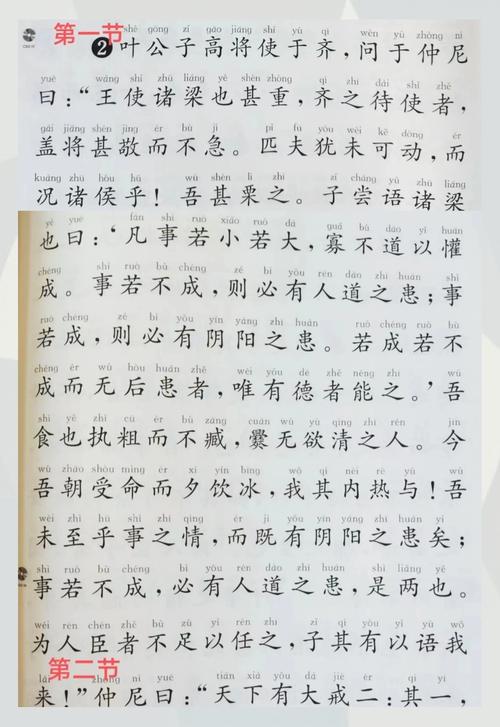 第一节
shè gōng zǐ gāo jiāng shǐ yú qí wèn yú zhòng ní
2 叶公子高将使于齐，问于仲尼
yuē wáng shǐ zhū liáng yě shèn zhòng qí zhī dài shǐ zhě
曰：“王使诸梁也甚重，齐之待使者，
gài jiāng shèn jìng ér bù jí pǐ fū yóu wèi kě dòng ér
盖将甚敬而不急。匹夫犹未可动，而
kuàng zhū hóu hū wú shèn lì zhī zǐ cháng yǔ zhū liáng
况诸侯乎！吾甚栗之。子尝语诸梁
yě yuē fán shì ruò xiǎo ruò dà guǎ bù dào yǐ huān
也曰：‘凡事若小若大，寡不道以懽
chéng shì ruò bù chéng zé bì yǒu rén dào zhī huàn shì
成。事若不成，则必有人道之患；事
ruò chéng zé bì yǒu yīn yáng zhī huàn ruò chéng ruò bù
若成，则必有阴阳之患。若成若不
chéng ér wú hòu huàn zhě wéi yǒu dé zhě néng zhī wú
成而无后患者，唯有德者能之。’吾
shí yě zhí cū ér bù zāng cuàn wú yù qìng zhī rén jīn
食也执粗而不臧，爨无欲清之人。今
wú zhāo shòu mìng ér xī yǐn bīng wǒ qí nèi rè yú wú
吾朝受命而夕饮冰，我其内热与！吾
wèi zhì hū shì zhī qíng ér jì yǒu yīn yáng zhī huàn yǐ
未至乎事之情，而既有阴阳之患矣；
shì ruò bù chéng bì yǒu rén dào zhī huàn shì liǎng yě
事若不成，必有人道之患，是两也。
wéi rén chén zhě bù zú yǐ rèn zhī zǐ qí yǒu yǐ yù wǒ
为人臣者不足以任之，子其有以语我
第二节
lái zhòng ní yuē tiān xià yǒu dà jiè èr qí yī
来！”仲尼曰：“天下有大戒二：其一，